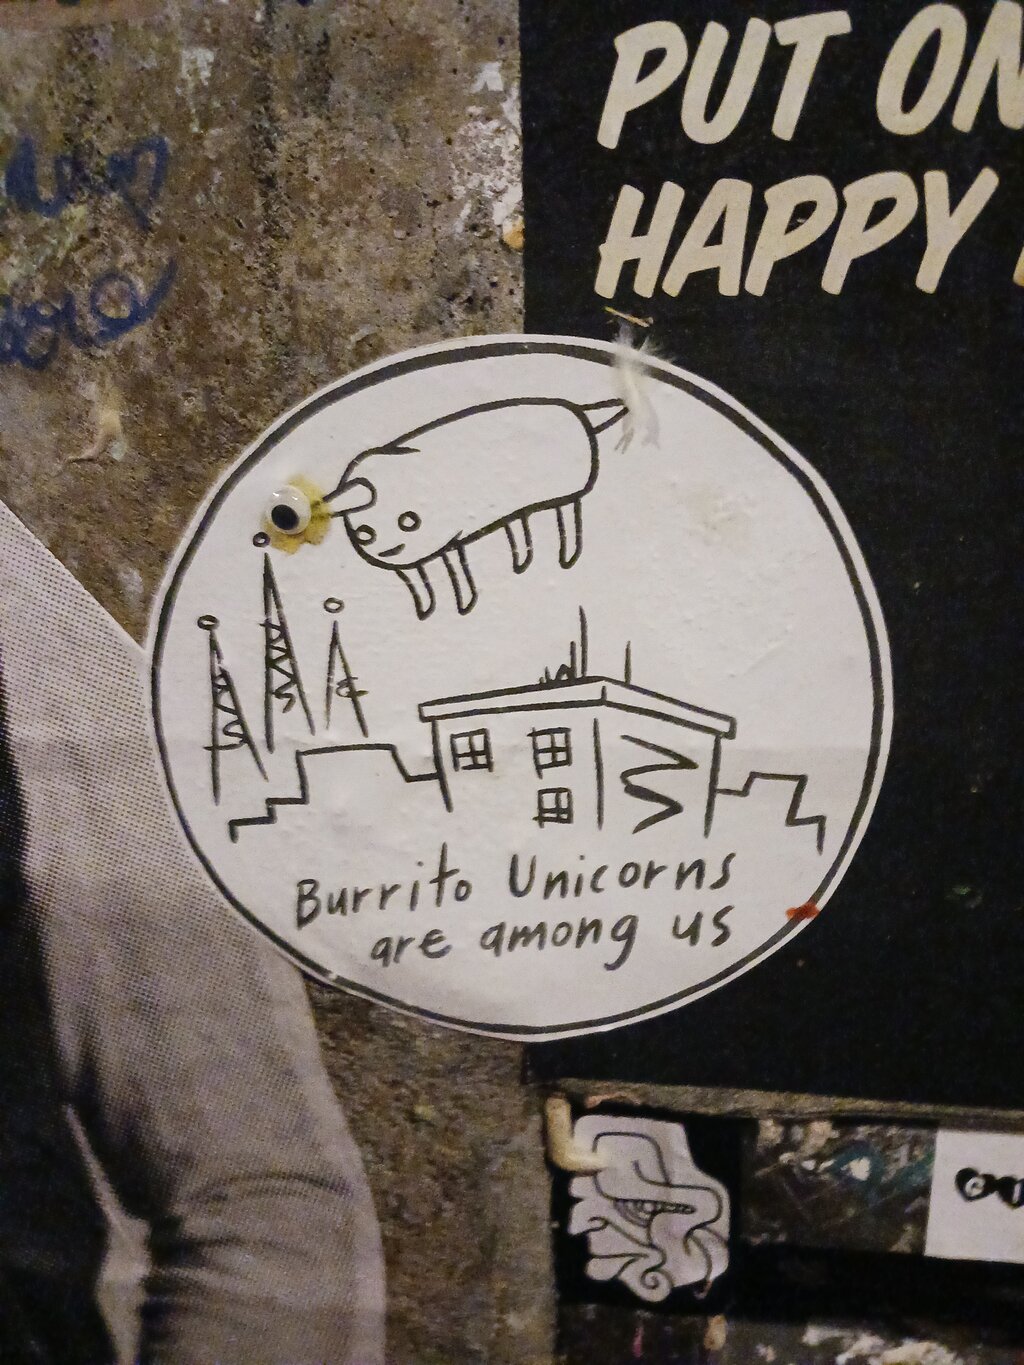 PUT ON
HAPPY
Burrito Unicorns
are among us